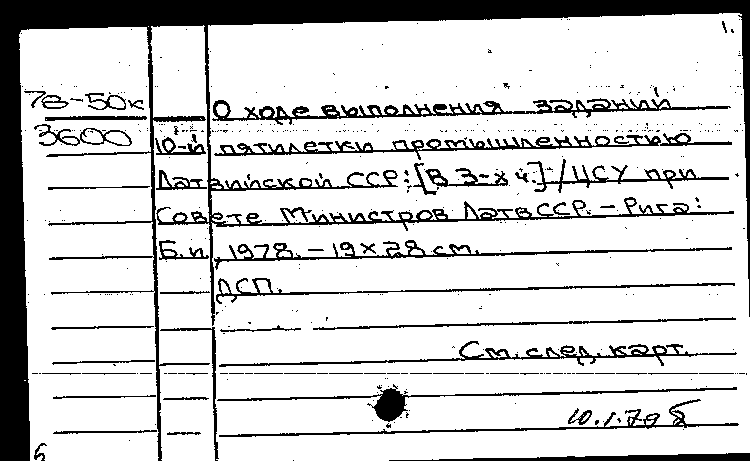 1.
78-50к О ходе выполнения заданий
3600 10-й пятилетки промышленностью
Латвийской ССР: [В 3-х ч.] / ЦСУ при
Совете Министров ЛатвССР. - Рига:
Б.и., 1978. - 19×28 см.
ДСП.
См. след. карт.
10.1.79
6